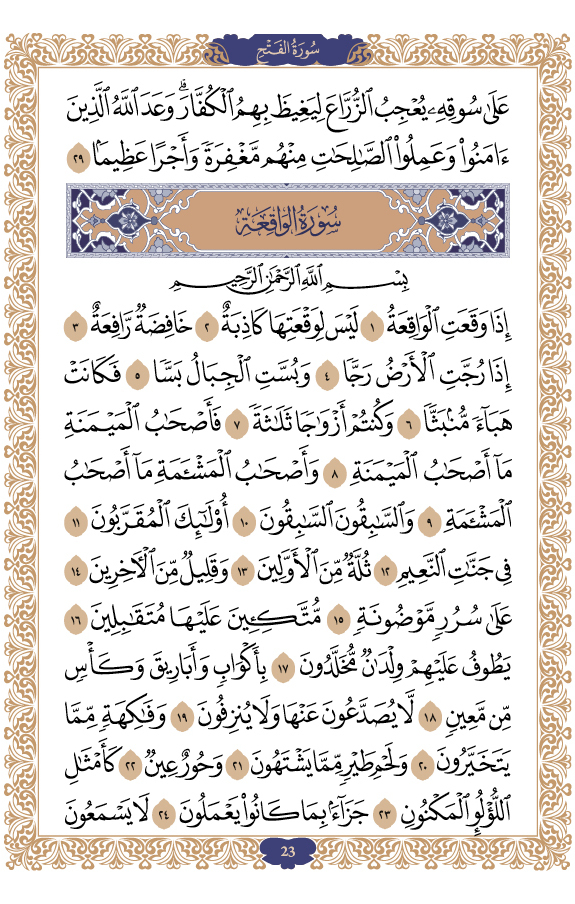 سُورَةُ الفَتْحِ
عَلَىٰ سُوقِهِۦ يُعْجِبُ ٱلزُّرَّاعَ لِيَغِيظَ بِهِمُ ٱلْكُفَّارَ ۗ وَعَدَ ٱللَّهُ ٱلَّذِينَ
ءَامَنُوا۟ وَعَمِلُوا۟ ٱلصَّـٰلِحَـٰتِ مِنْهُم مَّغْفِرَةً وَأَجْرًا عَظِيمًۢا ٢٩
سُورَةُ الوَاقِعَةِ
بِسْمِ ٱللَّهِ ٱلرَّحْمَـٰنِ ٱلرَّحِيمِ
إِذَا وَقَعَتِ ٱلْوَاقِعَةُ ١ لَيْسَ لِوَقْعَتِهَا كَاذِبَةٌ ٢ خَافِضَةٌ رَّافِعَةٌ ٣
إِذَا رُجَّتِ ٱلْأَرْضُ رَجًّا ٤ وَبُسَّتِ ٱلْجِبَالُ بَسًّا ٥ فَكَانَتْ
هَبَآءً مُّنۢبَثًّا ٦ وَكُنتُمْ أَزْوَٰجًا ثَلَـٰثَةً ٧ فَأَصْحَـٰبُ ٱلْمَيْمَنَةِ
مَآ أَصْحَـٰبُ ٱلْمَيْمَنَةِ ٨ وَأَصْحَـٰبُ ٱلْمَشْـَٔمَةِ مَآ أَصْحَـٰبُ
ٱلْمَشْـَٔمَةِ ٩ وَٱلسَّـٰبِقُونَ ٱلسَّـٰبِقُونَ ١٠ أُو۟لَـٰٓئِكَ ٱلْمُقَرَّبُونَ ١١
فِى جَنَّـٰتِ ٱلنَّعِيمِ ١٢ ثُلَّةٌ مِّنَ ٱلْأَوَّلِينَ ١٣ وَقَلِيلٌ مِّنَ ٱلْـَٔاخِرِينَ ١٤
عَلَىٰ سُرُرٍ مَّوْضُونَةٍ ١٥ مُّتَّكِـِٔينَ عَلَيْهَا مُتَقَـٰبِلِينَ ١٦
يَطُوفُ عَلَيْهِمْ وِلْدَٰنٌ مُّخَلَّدُونَ ١٧ بِأَكْوَابٍ وَأَبَارِيقَ وَكَأْسٍ
مِّن مَّعِينٍ ١٨ لَّا يُصَدَّعُونَ عَنْهَا وَلَا يُنزِفُونَ ١٩ وَفَـٰكِهَةٍ مِّمَّا
يَتَخَيَّرُونَ ٢٠ وَلَحْمِ طَيْرٍ مِّمَّا يَشْتَهُونَ ٢١ وَحُورٌ عِينٌ ٢٢ كَأَمْثَـٰلِ
ٱللُّؤْلُؤِ ٱلْمَكْنُونِ ٢٣ جَزَآءًۢ بِمَا كَانُوا۟ يَعْمَلُونَ ٢٤ لَا يَسْمَعُونَ
23